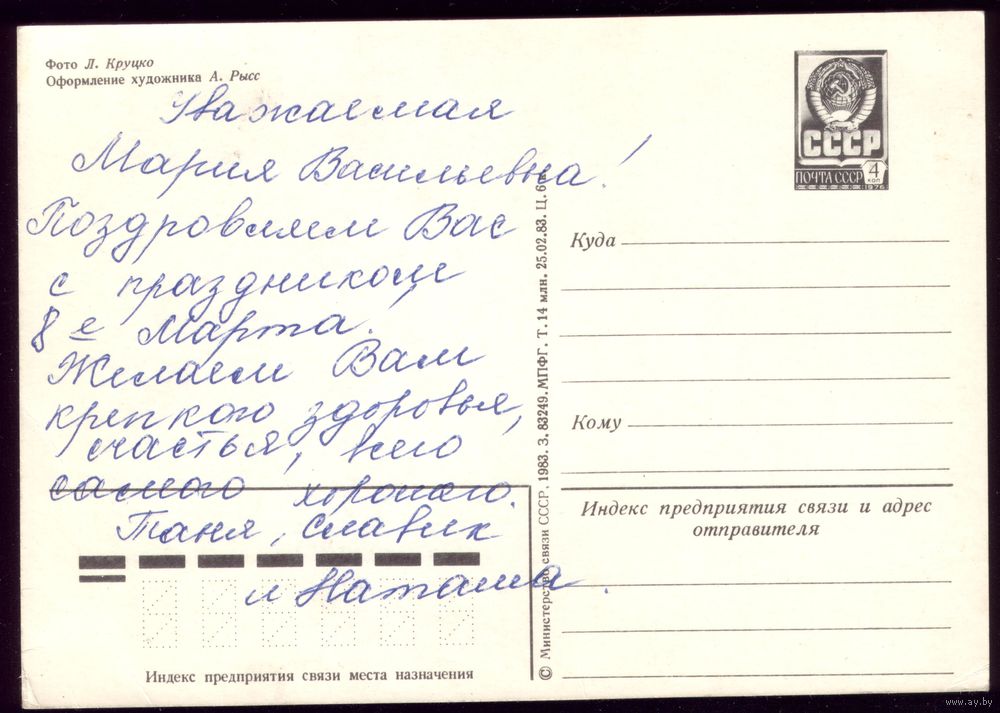 Фото Л. Круцко
Оформление художника А. Рысс
Уважаемая
Мария Васильевна!
Поздравляем Вас
с праздником
8 е Марта!
Желаем Вам
крепкого здоровья,
счастья, всего
самого хорошего.
Таня, Славик
и Наташа.
Индекс предприятия связи места назначения
© Министерство связи СССР. 1983. З. 83249. МПФГ. Т. 14 млн. 25.02.83. Ц. 6к
СССР
ПОЧТА СССР
4
КОП
1976
Куда
Кому
Индекс предприятия связи и адрес
отправителя
www.ay.by